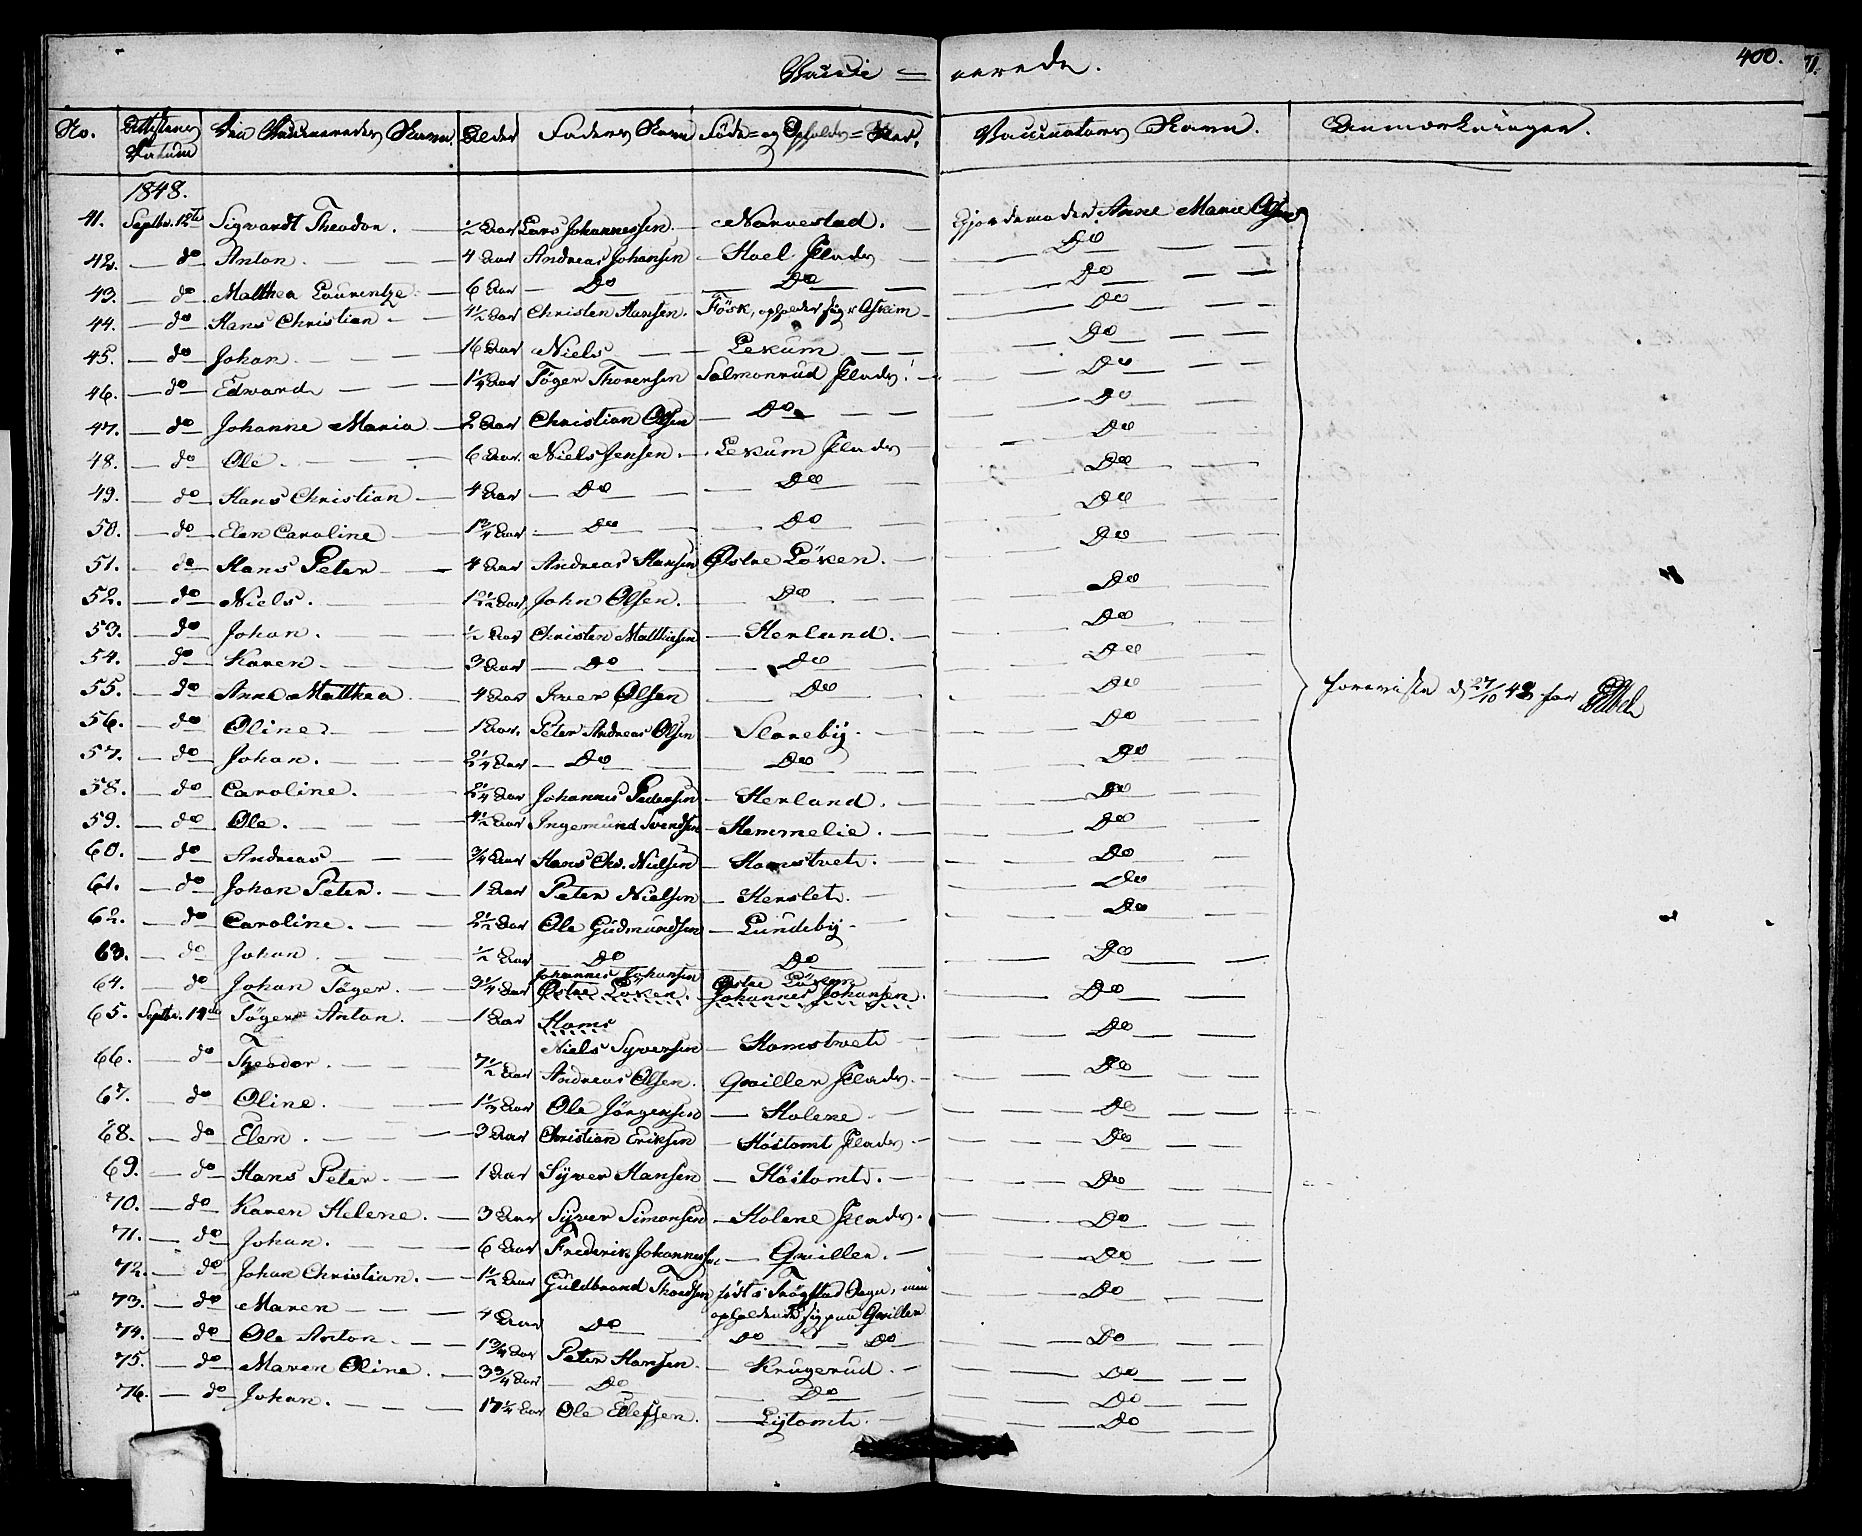 400.
Vacci = nerede.
No. Attestens Datum Den Vaccineredes Navn. Alder Faders Navn Föde= og Opholds=Sted. Vaccinators Navn. Anmærkninger.
1848.
41. Septbr. 12te Sigvardt Theodor. ½ Aar Lars Johannessen. Narvestad. Gjordemoder Anne Marie Olsen
42. do Anton 4 Aar Andreas Johansen Hoel Plads Do
43. do Matthea Laurentze 6 Aar Do Do Do
44. do Hans Christian 4½ Aar Christen Hansen. Fösk, opholder sig i Askim Do
45. do Johan 16 Aar Niels Lekum Do
46. do Edvard 1¼ Aar Töger Thoresen Salmonrud Plads. Do
47. do Johanne Maria 2 Aar Christian Olsen Do Do
48. do Ole. 6 Aar. Niels Jensen. Lekum Plads Do
49. do Hans Christian 4 Aar Do Do Do
50. do Elen Caroline 1¾ Aar Do Do Do
51. do Hans Peter 4 Aar Andreas Hansen Østre Löken. Do
52. do Niels. 12½ Aar John Olsen. Do Do
53. do Johan. ½ Aar Christen Matthiesen Herland. Do
54. do Karen 3 Aar Do Do Do
55. do Anne Matthea 4 Aar Iver Olsen Do Do
foreviste d 27/10 48 for
56. do Oline 1 Aar. Peter Andreas Olsen Slareby. Do
57. do Johan. 2¼ Aar Do Do Do
58. do Caroline. 2¼ Aar Johannes Pedersen Herland. Do
59. do Ole. 4½ Aar Ingemund Svendsen Hemmelie. Do
60. do Andreas ¾ Aar Hans Chr. Nielsen Homstvet. Do
61. do Johan Peter. 1 Aar Peter Nielsen Herslet. Do
62. do Caroline. 2½ Aar Ole Gudmundsen Lundeby. Do
63. do Johan ½ Aar Do Do Do
64. do Johan Töger. 3¼ Aar Johannes Johansen Østre Löken. Østre Löken Johannes Johansen. Do
65. Septbr. 14de Töger Anton. 1 Aar Homs Niels Syversen Homstvet Do
66. do Theodor. 7½ Aar Andreas Olsen. Qviller Plads. Do
67. do Oline. 1½ Aar Ole Jörgensen Holene Do
68. do Elen. 3 Aar Christian Eriksen Höitomt Plads. Do
69. do Hans Peter 1 Aar Syver Hansen Höitomt. Do
70. do Karen Helene. 3 Aar Syver Simonsen Holene Plads. Do
71. do Johan. 6 Aar Frederik Johannessen Qviller. Do
72. do Johan Christian. 1½ Aar Guldbrand Thordsen födt i Trögstad Sogn, men opholdende sig paa Qviller Do
73. do Maren 4 Aar Do Do Do Do
74. do Ole Anton 1¾ Aar Peter Hansen. Krugerud. Do
75. do Maren Oline. 3¾ Aar Do Do Do
76. do Johan. 17¼ Aar Ole Ellefsen. Lytomt. Do